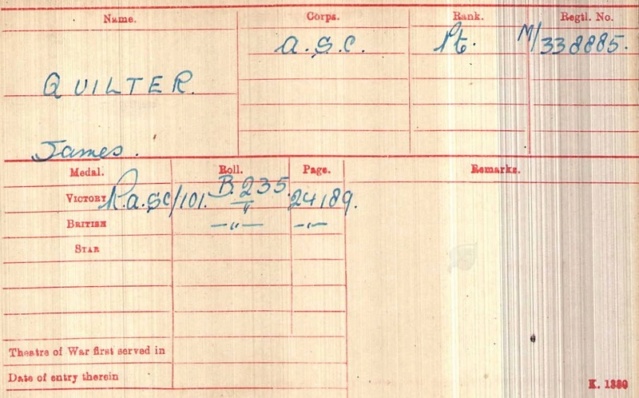 Name. Corps. Rank. Regtl. No.
A.S.C. Pt. M/338885.
QUILTER.
James.
Medal. Roll. Page. Remarks.
VICTORY R.A.SC/101. B.235. 24189.
BRITISH —"— —"—
STAR
Theatre of War first served in
Date of entry therein
K. 1380